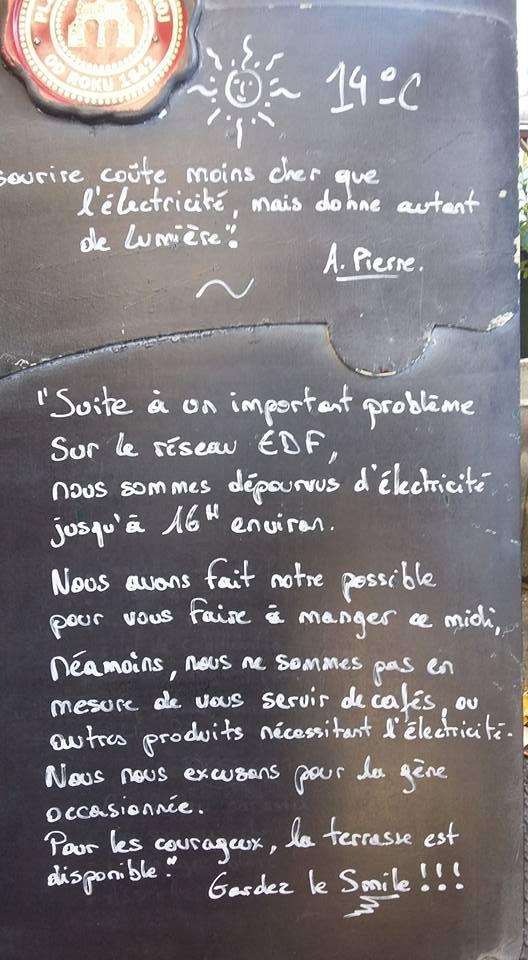 OD ROKU 1842
14°C
sourire coûte moins cher que
l'électricité, mais donne autant
de lumière".
A. Pierre.
~
"Suite à un important problème
sur le réseau EDF,
nous sommes dépourvus d'électricité
jusqu'à 16H environ.
Nous avons fait notre possible
pour vous faire à manger ce midi,
néamoins, nous ne sommes pas en
mesure de vous servir de cafés, ou
autres produits nécessitant l'électricité.
Nous nous excusons pour la gène
occasionnée.
Pour les courageux, la terrasse est
disponible".
Gardez le Smile !!!